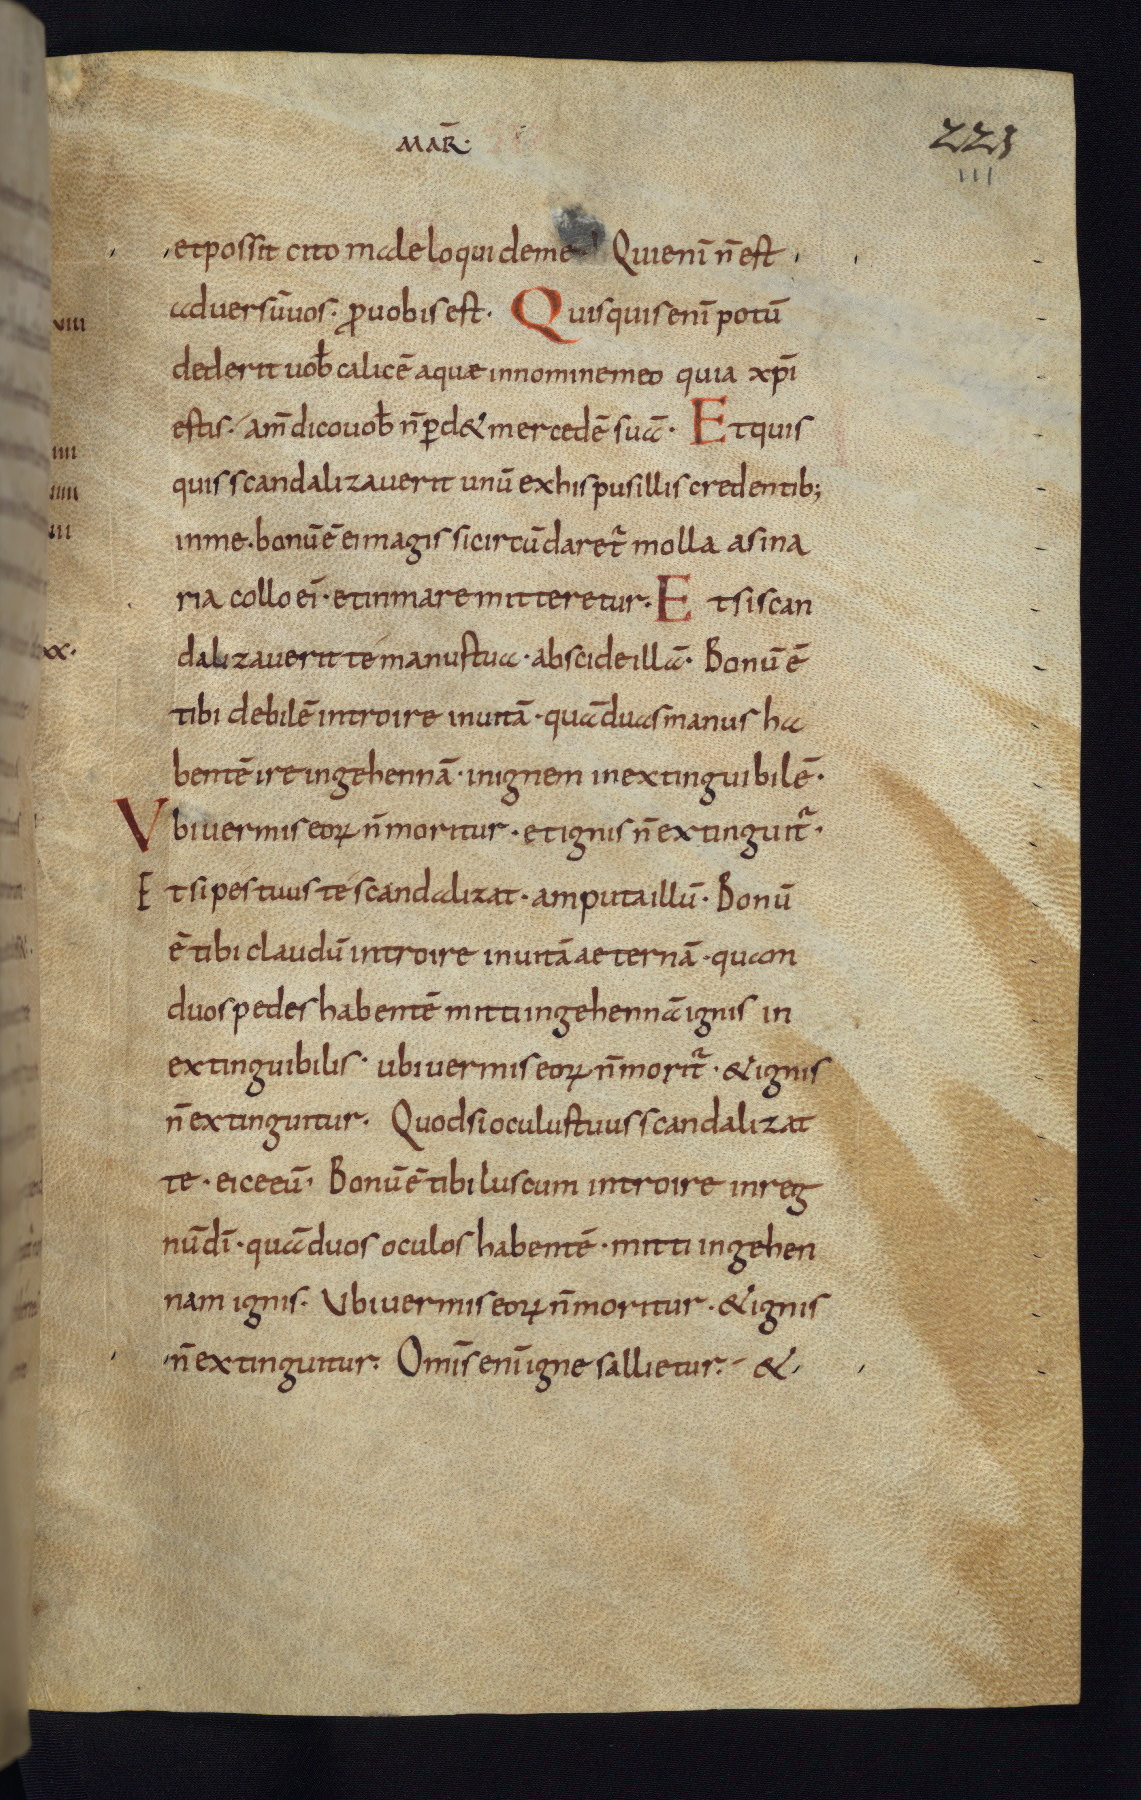 MAR̄.
223
III
et possit cito male loqui de me. Qui eni᷄ n̄ est
adversū vos. ꝓ vobis est. Quisquis enī potū
dederit vob̄ calicē aquæ in nomine meo quia xp̄i
estis. am̄ dico vob̄ n̄ ꝑd& mercedē suā. Et quis
quis scandalizaverit unū ex his pusillis credentib;
in me. bonū ē ei magis si circūdaret̄ molla asina
ria collo ei᷄. et in mare mitteretur. Et si scan
dalizaverit te manus tua. abscide illā. Bonū ē
tibi debilē introire in vitā. quā duas manus ha
bentē ire in gehennā. in ignem inextinguibilē.
Vbi vermis eoꝝ n̄ moritur. et ignis n̄ extinguit̄.
Et si pes tuus te scandalizat. amputa illū. Bonū
ē tibi claudū introire in vitā aeternā. quam
duos pedes habentē mitti in gehennā ignis in
extinguibilis. ubi vermis eoꝝ n̄ morit̄. & ignis
n̄ extinguitur. Quod si oculus tuus scandalizat
te. eice eū. Bonū ē tibi luscum introire in reg
nū dī. quā duos oculos habentē. mitti in gehen
nam ignis. Vbi vermis eoꝝ n̄ moritur. & ignis
n̄ extinguitur. Omīs enī igne sallietur. &
VIII
IIII
IIII
III
XX.